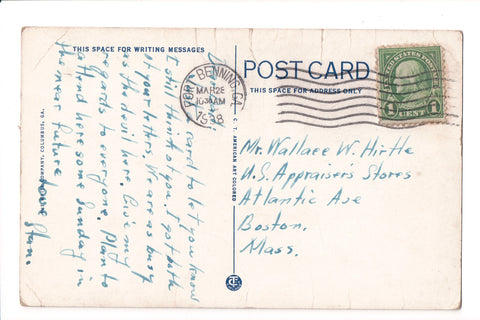 THIS SPACE FOR WRITING MESSAGES
POST CARD
THIS SPACE FOR ADDRESS ONLY
FORT BENNING, GA.
MAR 28
1938
UNITED STATES POSTAGE
1 CENT 1
a card to let you know
I still think of you. I got both
of your letters. We are as busy
as the devil here. Give my
regards to everyone. Plan to
attend here some Sunday in
the near future.
Love
Stan.
Mr. Wallace W. Hirtle
U.S. Appraisers Stores
Atlantic Ave
Boston.
Mass.
COMPANY, COLUMBUS, GA.
C. T. AMERICAN ART COLORED